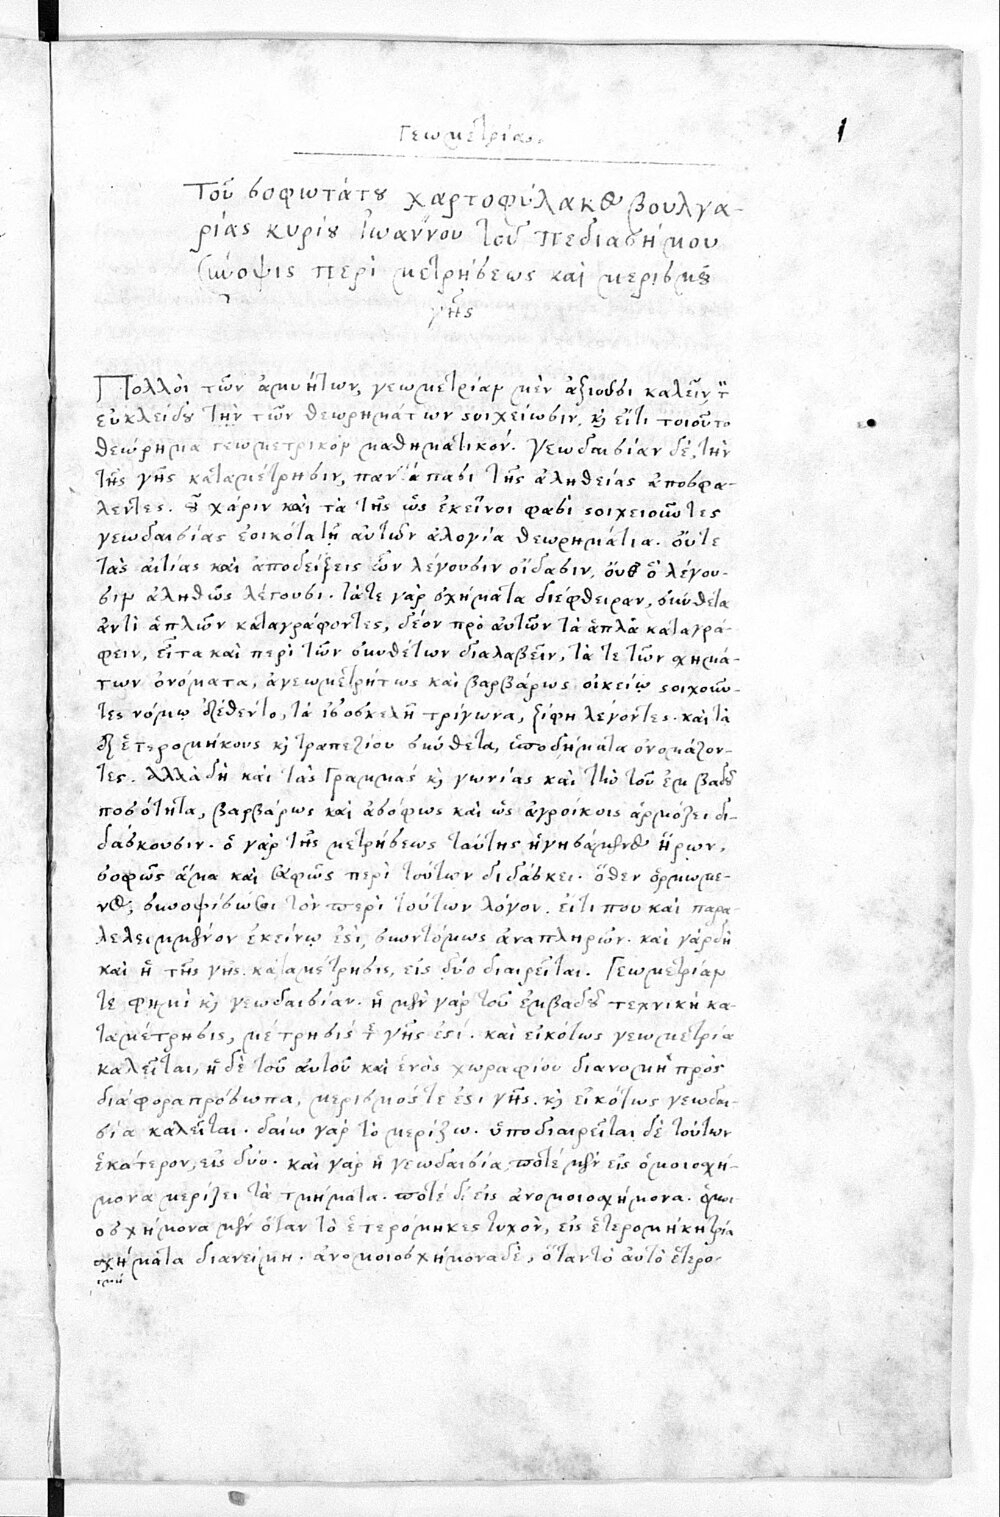 Γεωμετρία.
1
Τοῦ σοφωτάτου χαρτοφύλακος βουλγα-
ρίας κυρίου Ἰωάννου τοῦ πεδιασήμου
σύνοψις περὶ μετρήσεως καὶ μερισμοῦ
γῆς
Πολλοὶ τῶν ἀμυήτων, γεωμετρίαν μὲν ἀξιοῦσι καλεῖν τὴν
εὐκλείδου τὴν τῶν θεωρημάτων στοιχείωσιν, καὶ εἴτι τοιοῦτο
θεώρημα γεωμετρικὸν μαθηματικόν. γεωδαισίαν δὲ, τὴν
τῆς γῆς καταμέτρησιν, παντάπασι τῆς ἀληθείας ἀποσφα-
λέντες. οὗ χάριν καὶ τὰ τῆς ὡς ἐκεῖνοι φασὶ στοιχειοῦντες
γεωδαισίας ἐοικότα τῇ αὐτῶν ἀλογία θεωρημάτια. οὔτε
τὰς αἰτίας καὶ ἀποδείξεις ὧν λέγουσιν οἴδασιν, οὔθ' ὃ λέγου-
σιν ἀληθῶς λέγουσι. τά τε γὰρ σχήματα διέφθειραν, σύνθετα
ἀντὶ ἁπλῶν καταγράφοντες, δέον πρὸ αὐτῶν τὰ ἁπλᾶ καταγρά-
φειν, εἶτα καὶ περὶ τῶν συνθέτων διαλαβεῖν, τά τε τῶν σχημά-
των ὀνόματα, ἀγεωμετρήτως καὶ βαρβάρως οἰκείῳ στοιχοῦν-
τες νόμῳ ἐξέθεντο, τὰ ἰσοσκελῆ τρίγωνα, ξίφη λέγοντες. καὶ τὰ
ἐξ ἑτερομήκους καὶ τραπεζίου σύνθετα, ὑποδήματα ὀνομάζον-
τες. ἀλλὰ δὴ καὶ τὰς γραμμὰς καὶ γωνίας καὶ τὴν τοῦ ἐμβαδοῦ
ποσότητα, βαρβάρως καὶ ἀσόφως καὶ ὡς ἀγροίκοις ἁρμόζει δι-
δάσκουσιν. ὁ γὰρ τῆς μετρήσεως ταύτης ἡγησάμενος ἥρων,
σοφῶς ἅμα καὶ σαφῶς περὶ τούτων διδάσκει. ὅθεν ὁρμώμε-
νος, συνοψίσωμαι τὸν περὶ τούτων λόγον. εἴτι που καὶ παρα
λελειμμένον ἐκείνῳ ἐστὶ, συντόμως ἀναπληρῶν. καὶ γὰρ δὴ
καὶ ἡ τῆς γῆς καταμέτρησις, εἰς δύο διαιρεῖται. Γεωμετρίαν
τε φημὶ καὶ γεωδαισίαν. ἡ μὲν γὰρ τοῦ ἐμβαδοῦ τεχνικὴ κα-
ταμέτρησις, μέτρησίς τε γῆς ἐστί. καὶ εἰκότως γεωμετρία
καλεῖται, ἡ δὲ τοῦ αὐτοῦ καὶ ἑνὸς χωραφίου διανομὴ πρὸς
διάφορα πρόσωπα, μερισμός τέ ἐστι γῆς. καὶ εἰκότως γεωδαι-
σία καλεῖται. δαίω γὰρ τὸ μερίζω. ὑποδιαιρεῖται δὲ τούτων
ἑκάτερον, εἰς δύο. καὶ γὰρ ἡ γεωδαισία ποτὲ μὲν εἰς ὁμοιοσχή-
μονα μερίζει τὰ τμήματα. ποτὲ δ' εἰς ἀνομοιοσχήμονα. ὁμοι
οσχήμονα μὲν ὅταν τὸ ἑτερόμηκες τυχὸν, εἰς ἑτερομήκη τρία
σχήματα διανείμη. ἀνομοιοσχήμονα δὲ, ὅταν τὸ αὐτὸ ἑτερο-